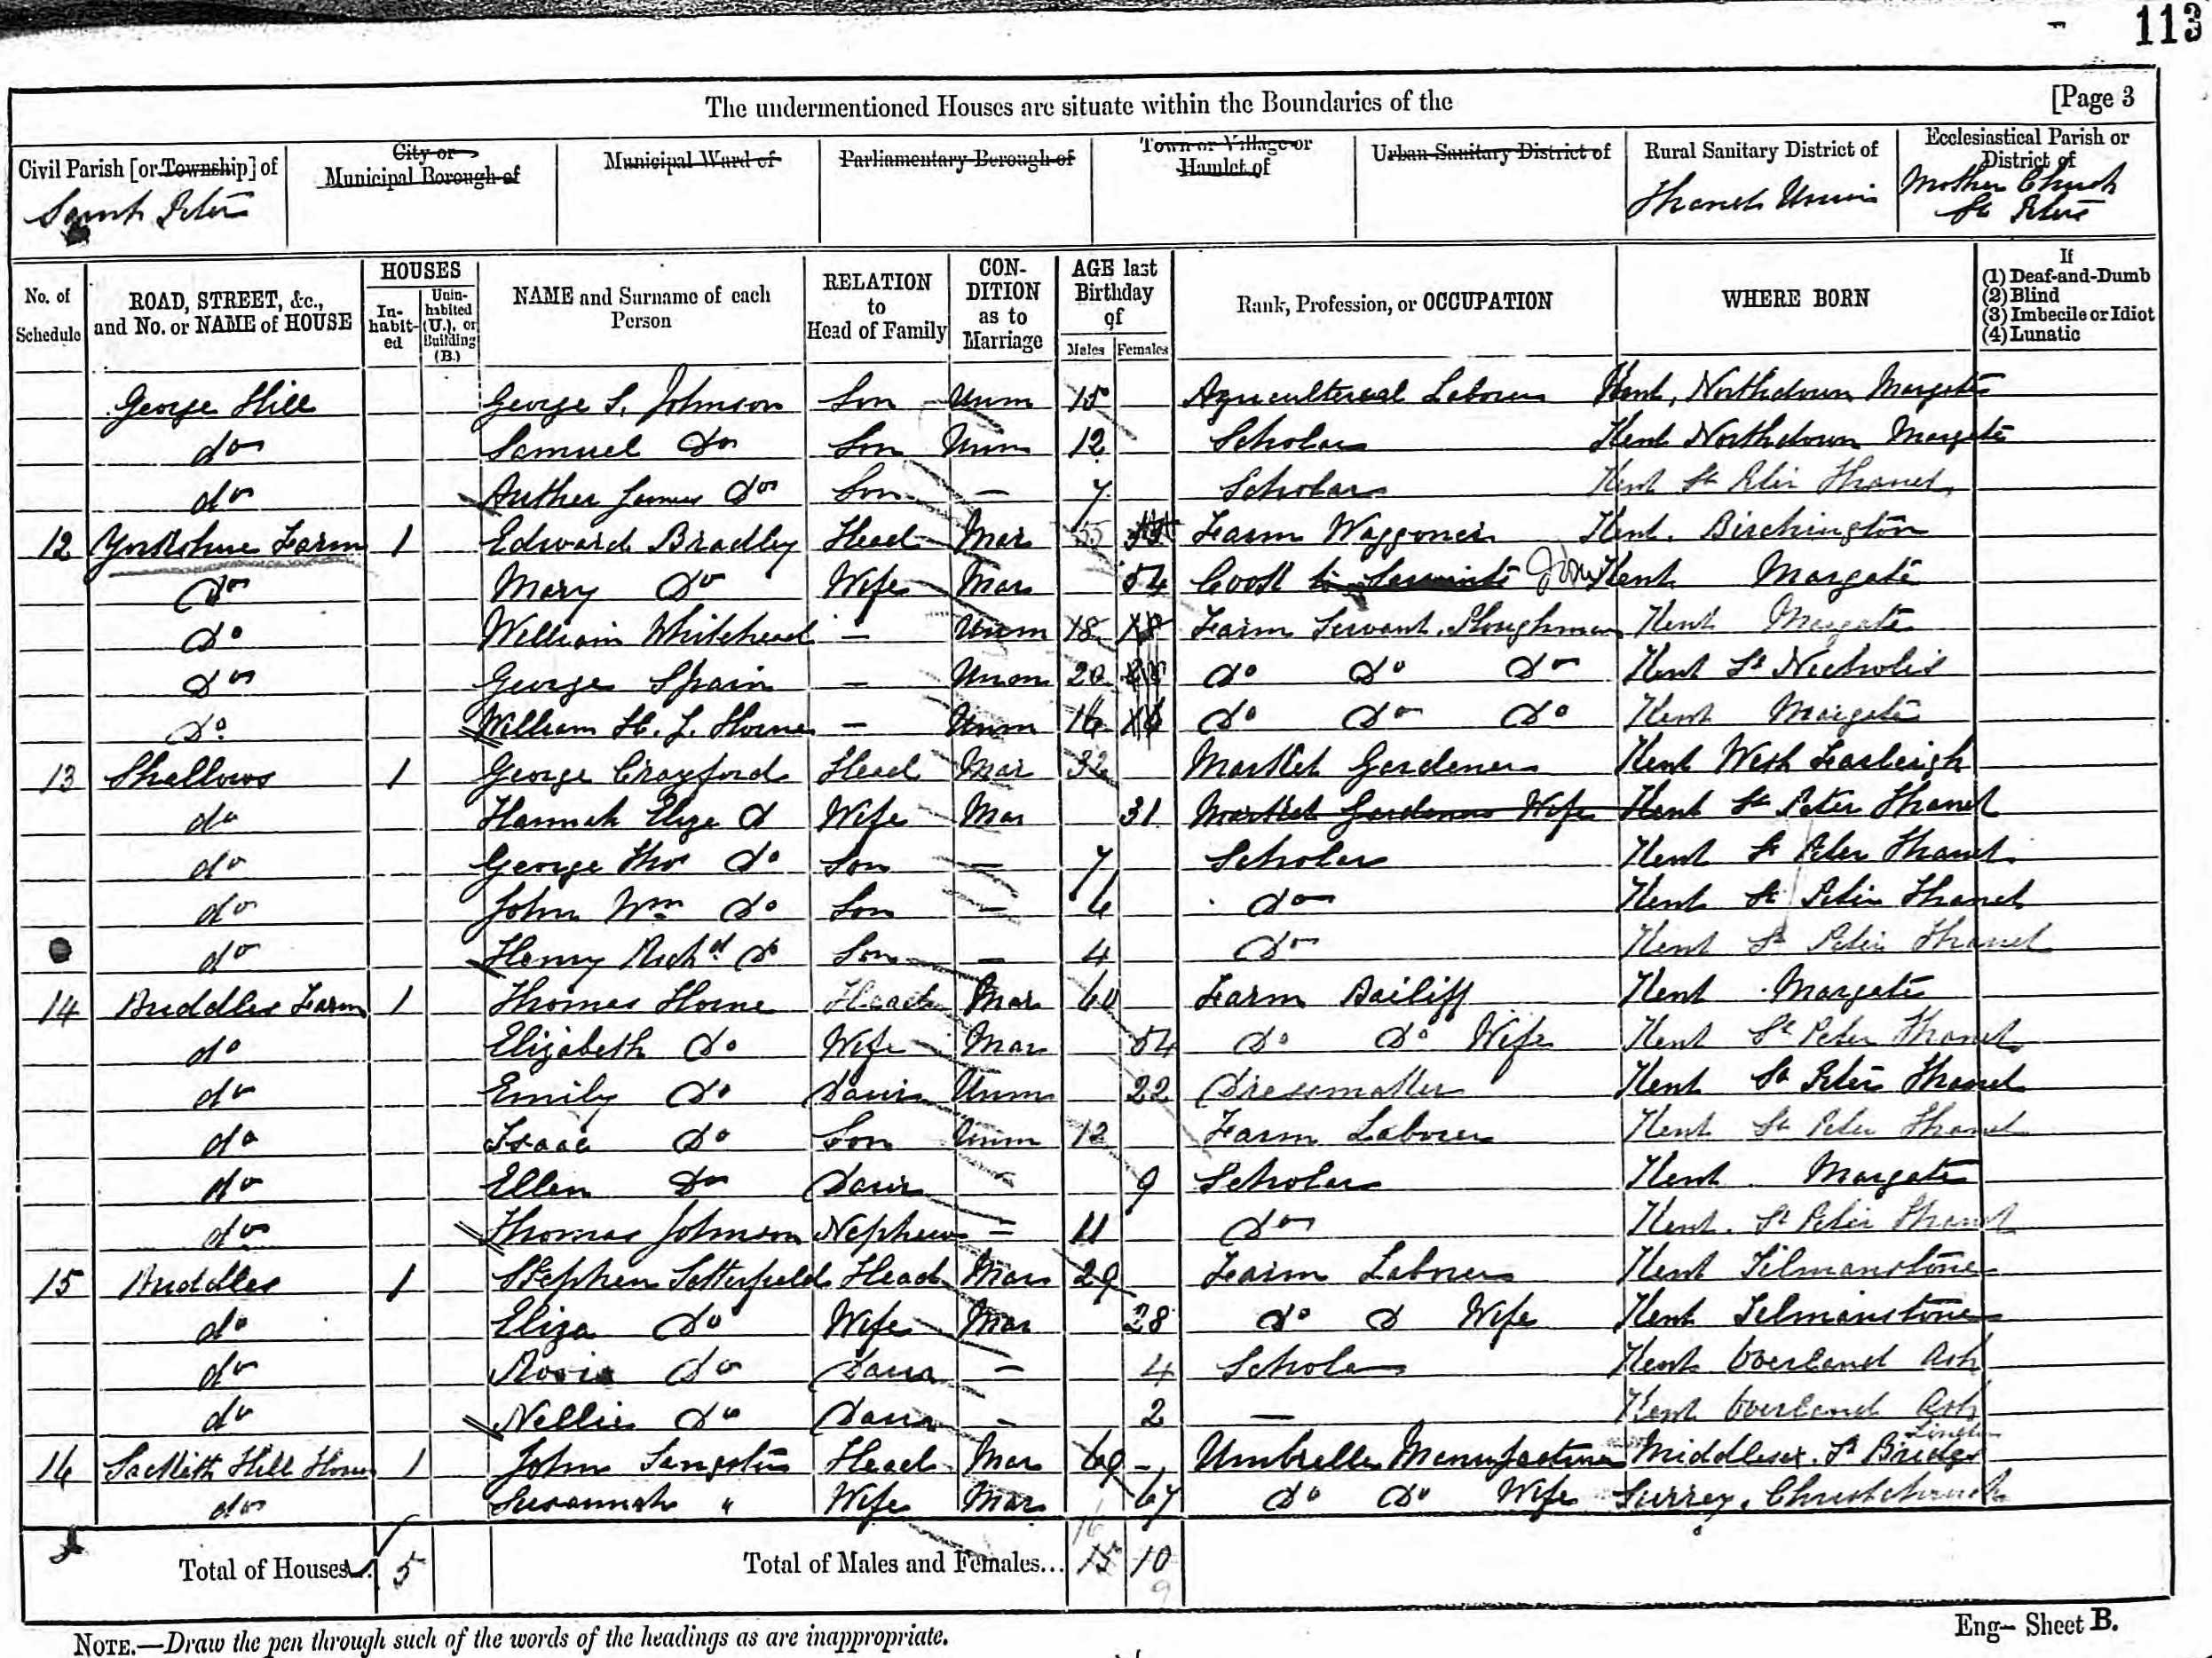 113
The undermentioned Houses are situate within the Boundaries of the [Page 3
Civil Parish [or Township] of
City or Municipal Borough of
Municipal Ward of
Parliamentary Borough of
Town or Village or Hamlet of
Urban Sanitary District of
Rural Sanitary District of
Ecclesiastical Parish or District of
Saint Peters
Thanet Union
Mother Church St Peters
No. of Schedule
ROAD, STREET, &c., and No. or NAME of HOUSE
HOUSES
In-habit-ed
Unin-habited (U.), or Building (B.)
NAME and Surname of each Person
RELATION to Head of Family
CON-DITION as to Marriage
AGE last Birthday of
Males Females
Rank, Profession, or OCCUPATION
WHERE BORN
If
(1) Deaf-and-Dumb
(2) Blind
(3) Imbecile or Idiot
(4) Lunatic
George Hill George S. Johnson Son Unm 15 Agricultural Labourer Kent, Northdown Margate
do Samuel Do Son Unm 12 Scholar Kent Northdown Margate
do Arther James Do Son — 7 Scholar Kent St Peter Thanet
12 Yorkshire Farm 1 Edward Bradley Head Mar 55 Farm Waggoner Kent. Birchington
Do Mary Do Wife Mar 54 Cook to Servants Kent Margate
Do William Whitehead — Unm 18 18 Farm Servant, Ploughman Kent Margate
Do George Spain — Unm 20 20 Do Do Do Kent St Nicholis
Do William H. J. Horne — Unm 16 16 Do Do Do Kent Margate
13 Shallows 1 George Crayford Head Mar 32 Market Gardener Kent West Farleigh
do Hannah Eliza D Wife Mar 31 Market Gardeners Wife Kent St Peter Thanet
do George Thos Do Son — 7 Scholar Kent St Peter Thanet
do John Wm Do Son — 6 Do Kent St Peter Thanet
do Henry Richd Do Son — 4 Do Kent St Peter Thanet
14 Buddles Farm 1 Thomas Horne Head Mar 60 Farm Bailiff Kent Margate
do Elizabeth Do Wife Mar 54 Do Do Wife Kent St Peter Thanet
do Emily Do Daur Unm 22 Dressmaker Kent St Peter Thanet
do Isaac Do Son Unm 12 Farm Labourer Kent St Peter Thanet
do Ellen Do Daur 9 Scholar Kent Margate
do Thomas Johnson Nephew — 11 Do Kent. St Peter Thanet
15 Buddles 1 Stephen Setterfield Head Mar 29 Farm Labourer Kent Tilmanstone
do Eliza Do Wife Mar 28 do D Wife Kent Tilmanstone
do Rosie Do Daur — 4 Scholar Kent Overland Ash
do Nellie Do Daur — 2 — Kent Overland Ash
16 Sackett Hill House 1 John Sangster Head Mar 69 – Umbrella Manufacturer Middlesex. St Brides London
do Susannah " Wife Mar 67 Do Do Wife Surrey, Christchurch
Total of Houses... 5
Total of Males and Females... 16 15 10 9
NOTE.—Draw the pen through such of the words of the headings as are inappropriate.
Eng— Sheet B.